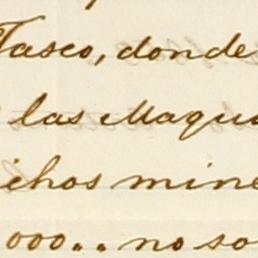 Tasco, donde
las Maqui
ichos mine
000.. no so